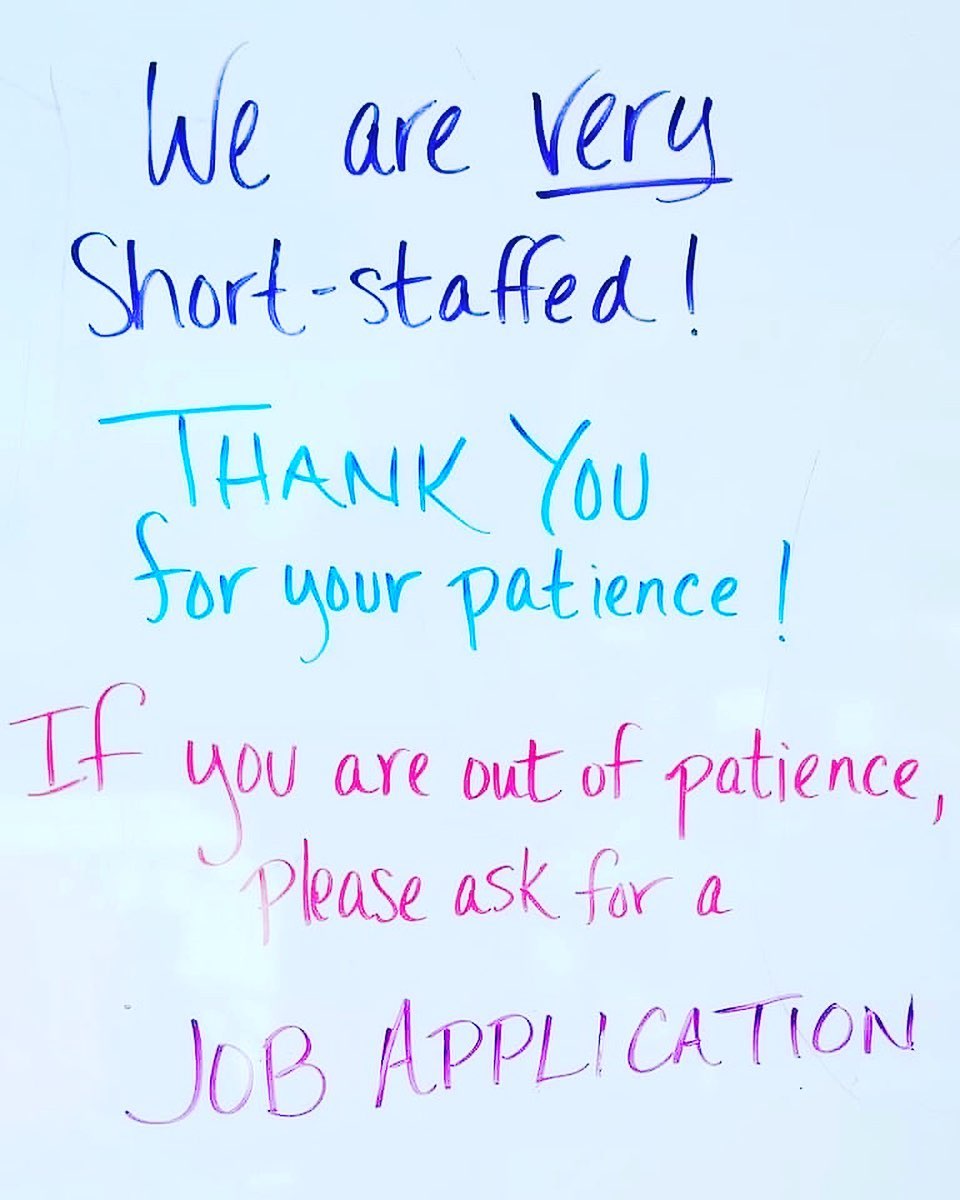 We are very
Short-staffed!
THANK YOU
for your patience!
If you are out of patience,
please ask for a
JOB APPLICATION